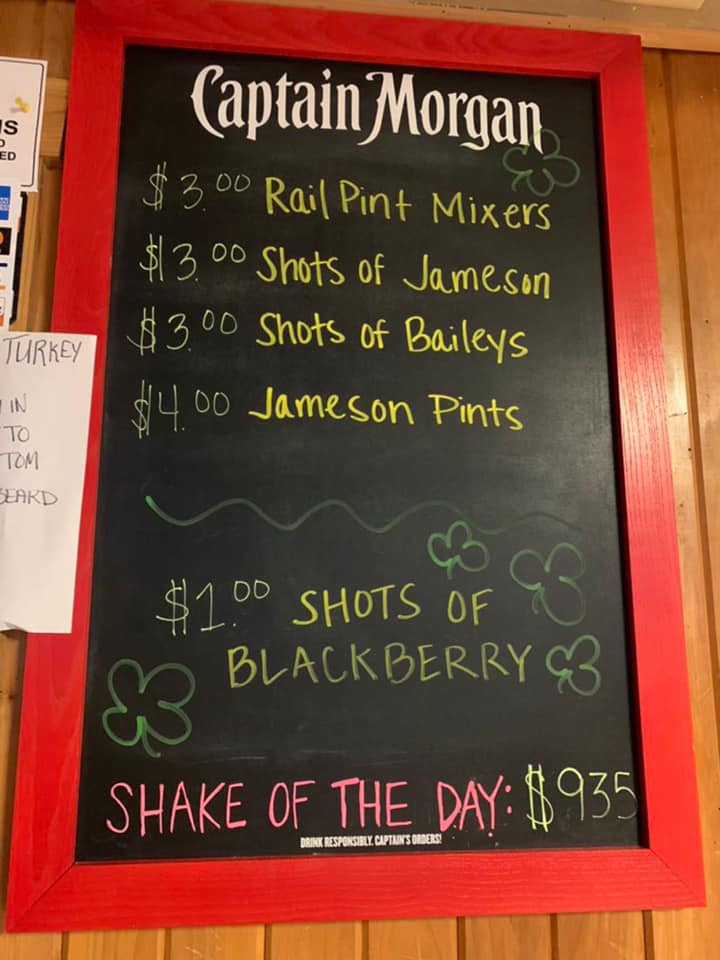 Captain Morgan
$3.00 Rail Pint Mixers
$3.00 Shots of Jameson
$3.00 Shots of Baileys
$4.00 Jameson Pints
$1.00 SHOTS OF
BLACKBERRY
SHAKE OF THE DAY: $935
DRINK RESPONSIBLY. CAPTAIN'S ORDERS!
TURKEY
IN
TO
TOM
BEARD